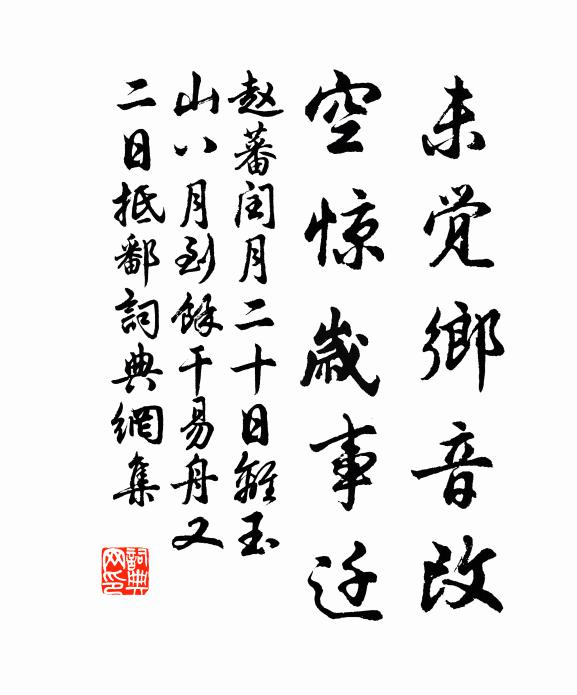 未觉鄉音改
空惊歲事迁
赵蕃闰月二十日離玉
山八月到餘干易舟又
二日抵鄱詞典網集
詞典
网印